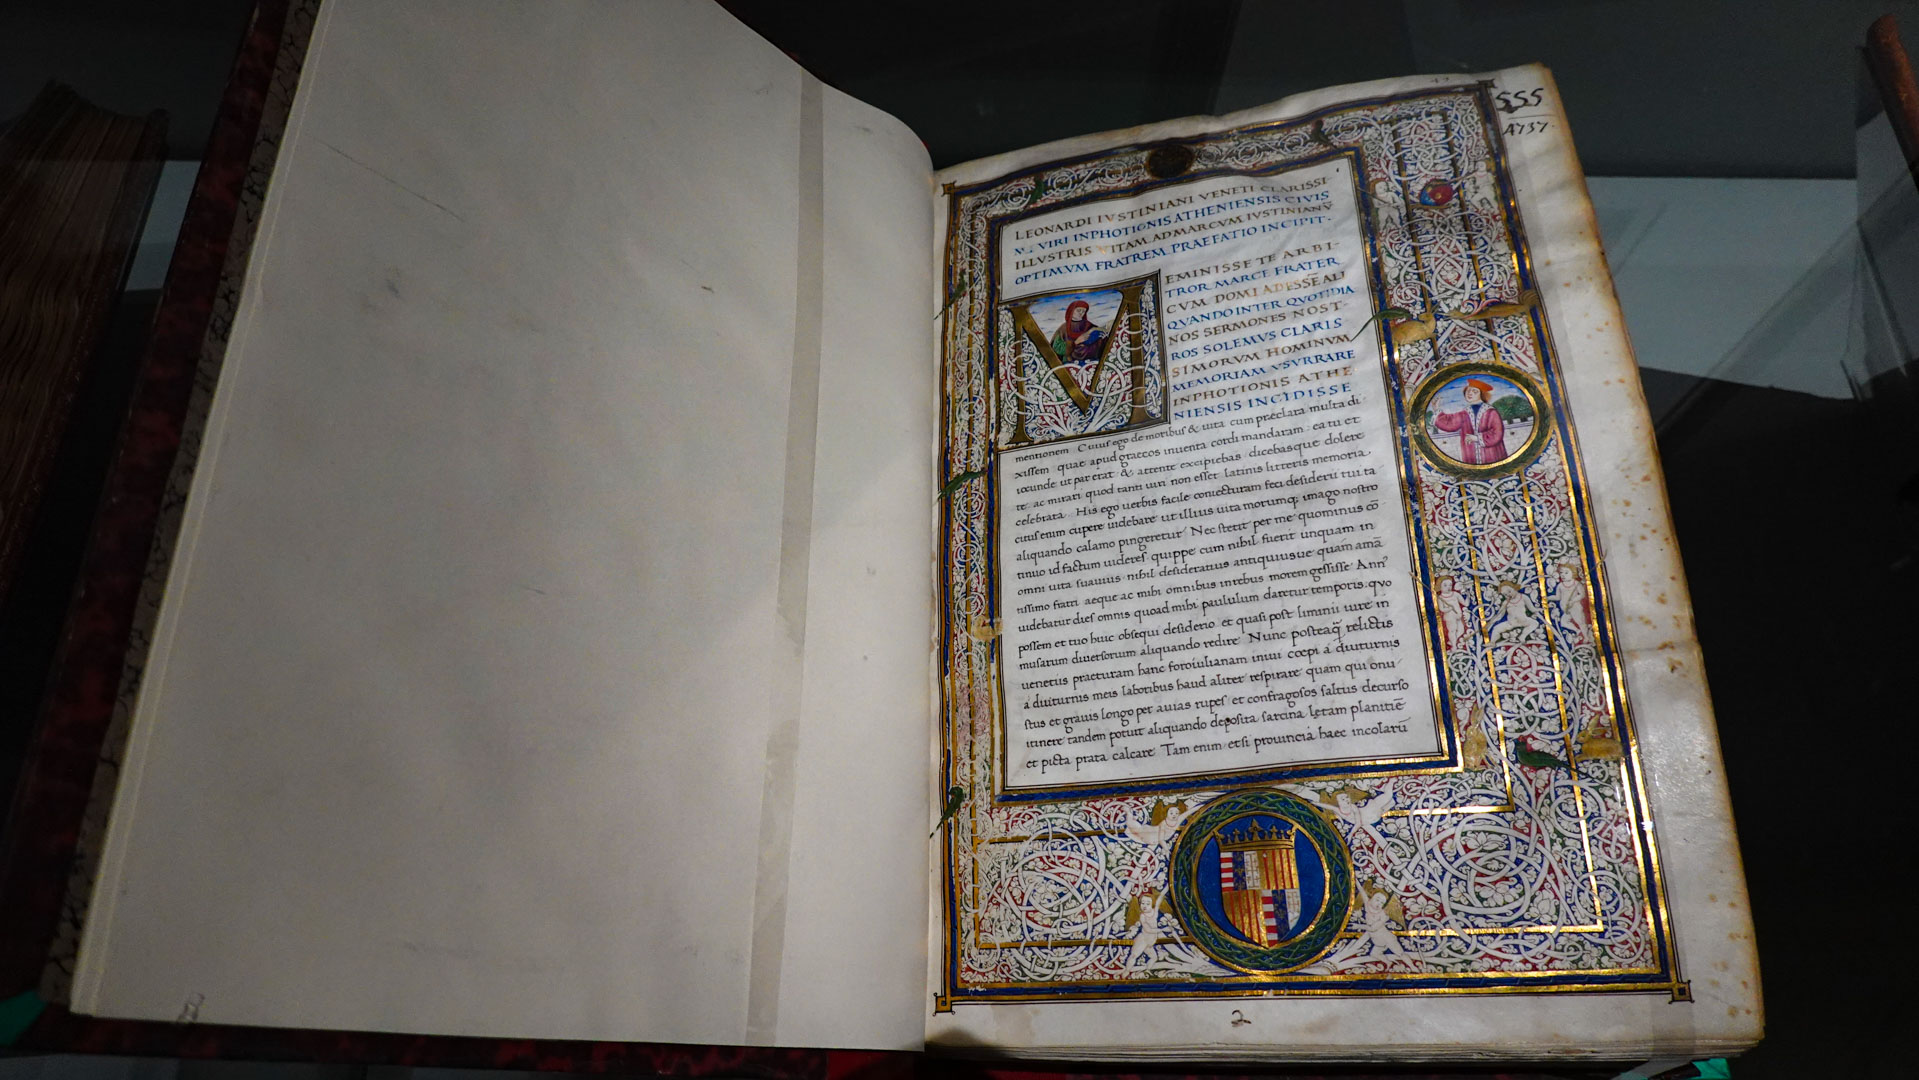 555
A737.
LEONARDI IVSTINIANI VENETI CLARISSI
VIRI INPHOTIONIS ATHENIENSIS CIVIS
ILLVSTRIS VITAM. AD MARCVM IVSTINIANV
OPTIMVM FRATREM. PRAEFATIO INCIPIT.
MEMINISSE TE ARBI-
TROR MARCE FRATER
CVM DOMI ADESSĒ ALI
QVANDO INTER QVOTIDIA
NOS SERMONES NOST-
ROS SOLEMVS CLARIS
SIMORVM HOMINVM
MEMORIAM VSVRRARE
INPHOTIONIS ATHE
NIENSIS INCIDISSE
mentionem Cuius ego de moribus & uita cum preclara multa di
xissem quae apud graecos inuenta cordi mandaram: ea tu et
iocunde ut par erat & attente excipiebas: dicebasque dolere
te ac mirari quod tanti uiri non esset latinis litteris memoria
celebrata. His ego uerbis facile coniecturam feci desiderii tui ta
cuius enim cupere uidebare ut illius uita morumq; imago nostro
aliquando calamo pingeretur Nec stetit per me quominus cō
tinuo id factum uideres quippe cum nihil fuerit unquam in
omni uita suauius nihil desideratius antiquiusue quam amā
tissimo fratri aeque ac mihi omnibus in rebus morem gessisse Ann
uidebatur dies omnis quoad mihi paululum daretur temporis. quo
possem et tuo huic obsequi desiderio et quasi post liminii iure in
musarum diuersorum aliquando redire Nunc posteaq̄ relictis
uenetiis praeturam hanc foroiulianam iniui coepi a diuturnis
a diuturnis meis laboribus haud aliter respirare quam qui onu
stus et grauis longo per auias rupes et confragosos saltus decurso
itinere tandem potuit aliquando deposita sarcina letam planitiē
et picta prata calcare Tam enim etsi prouincia haec incolarū
2